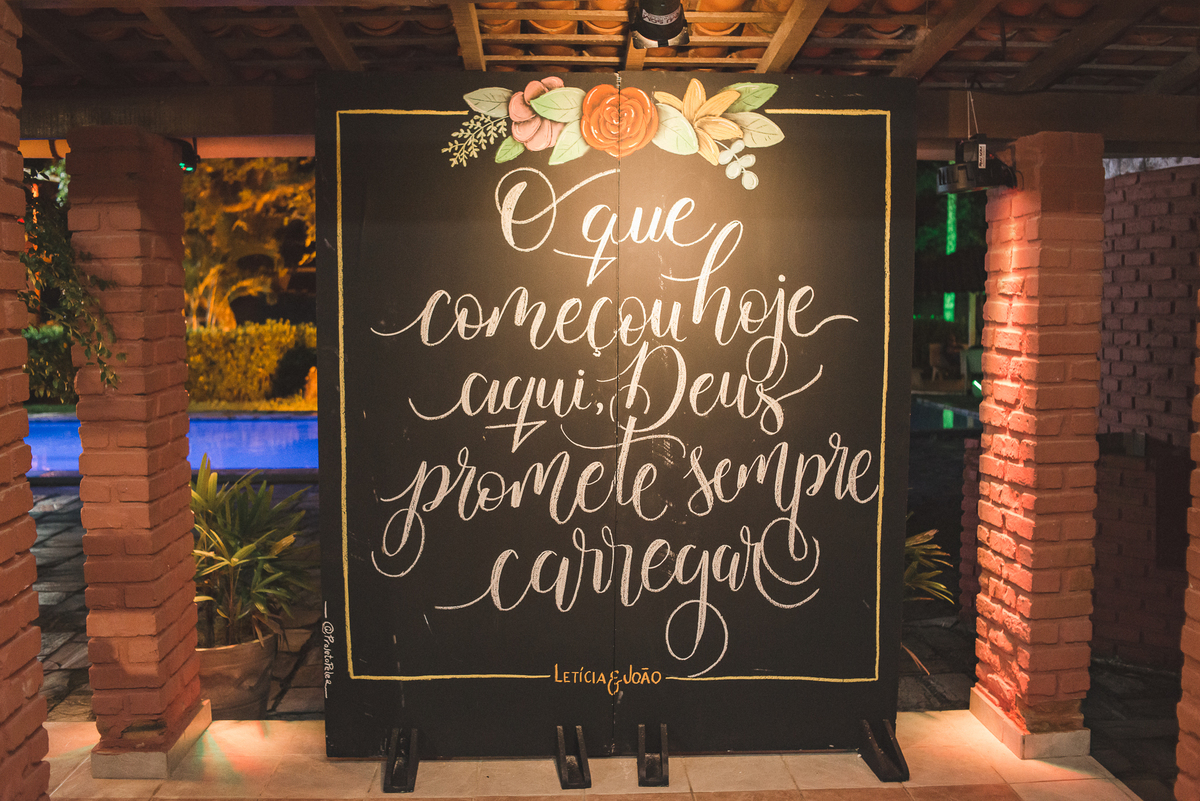 O que
começou hoje
aqui, Deus
promete sempre
carregar
LETÍCIA & JOÃO
@PROJETOPELER